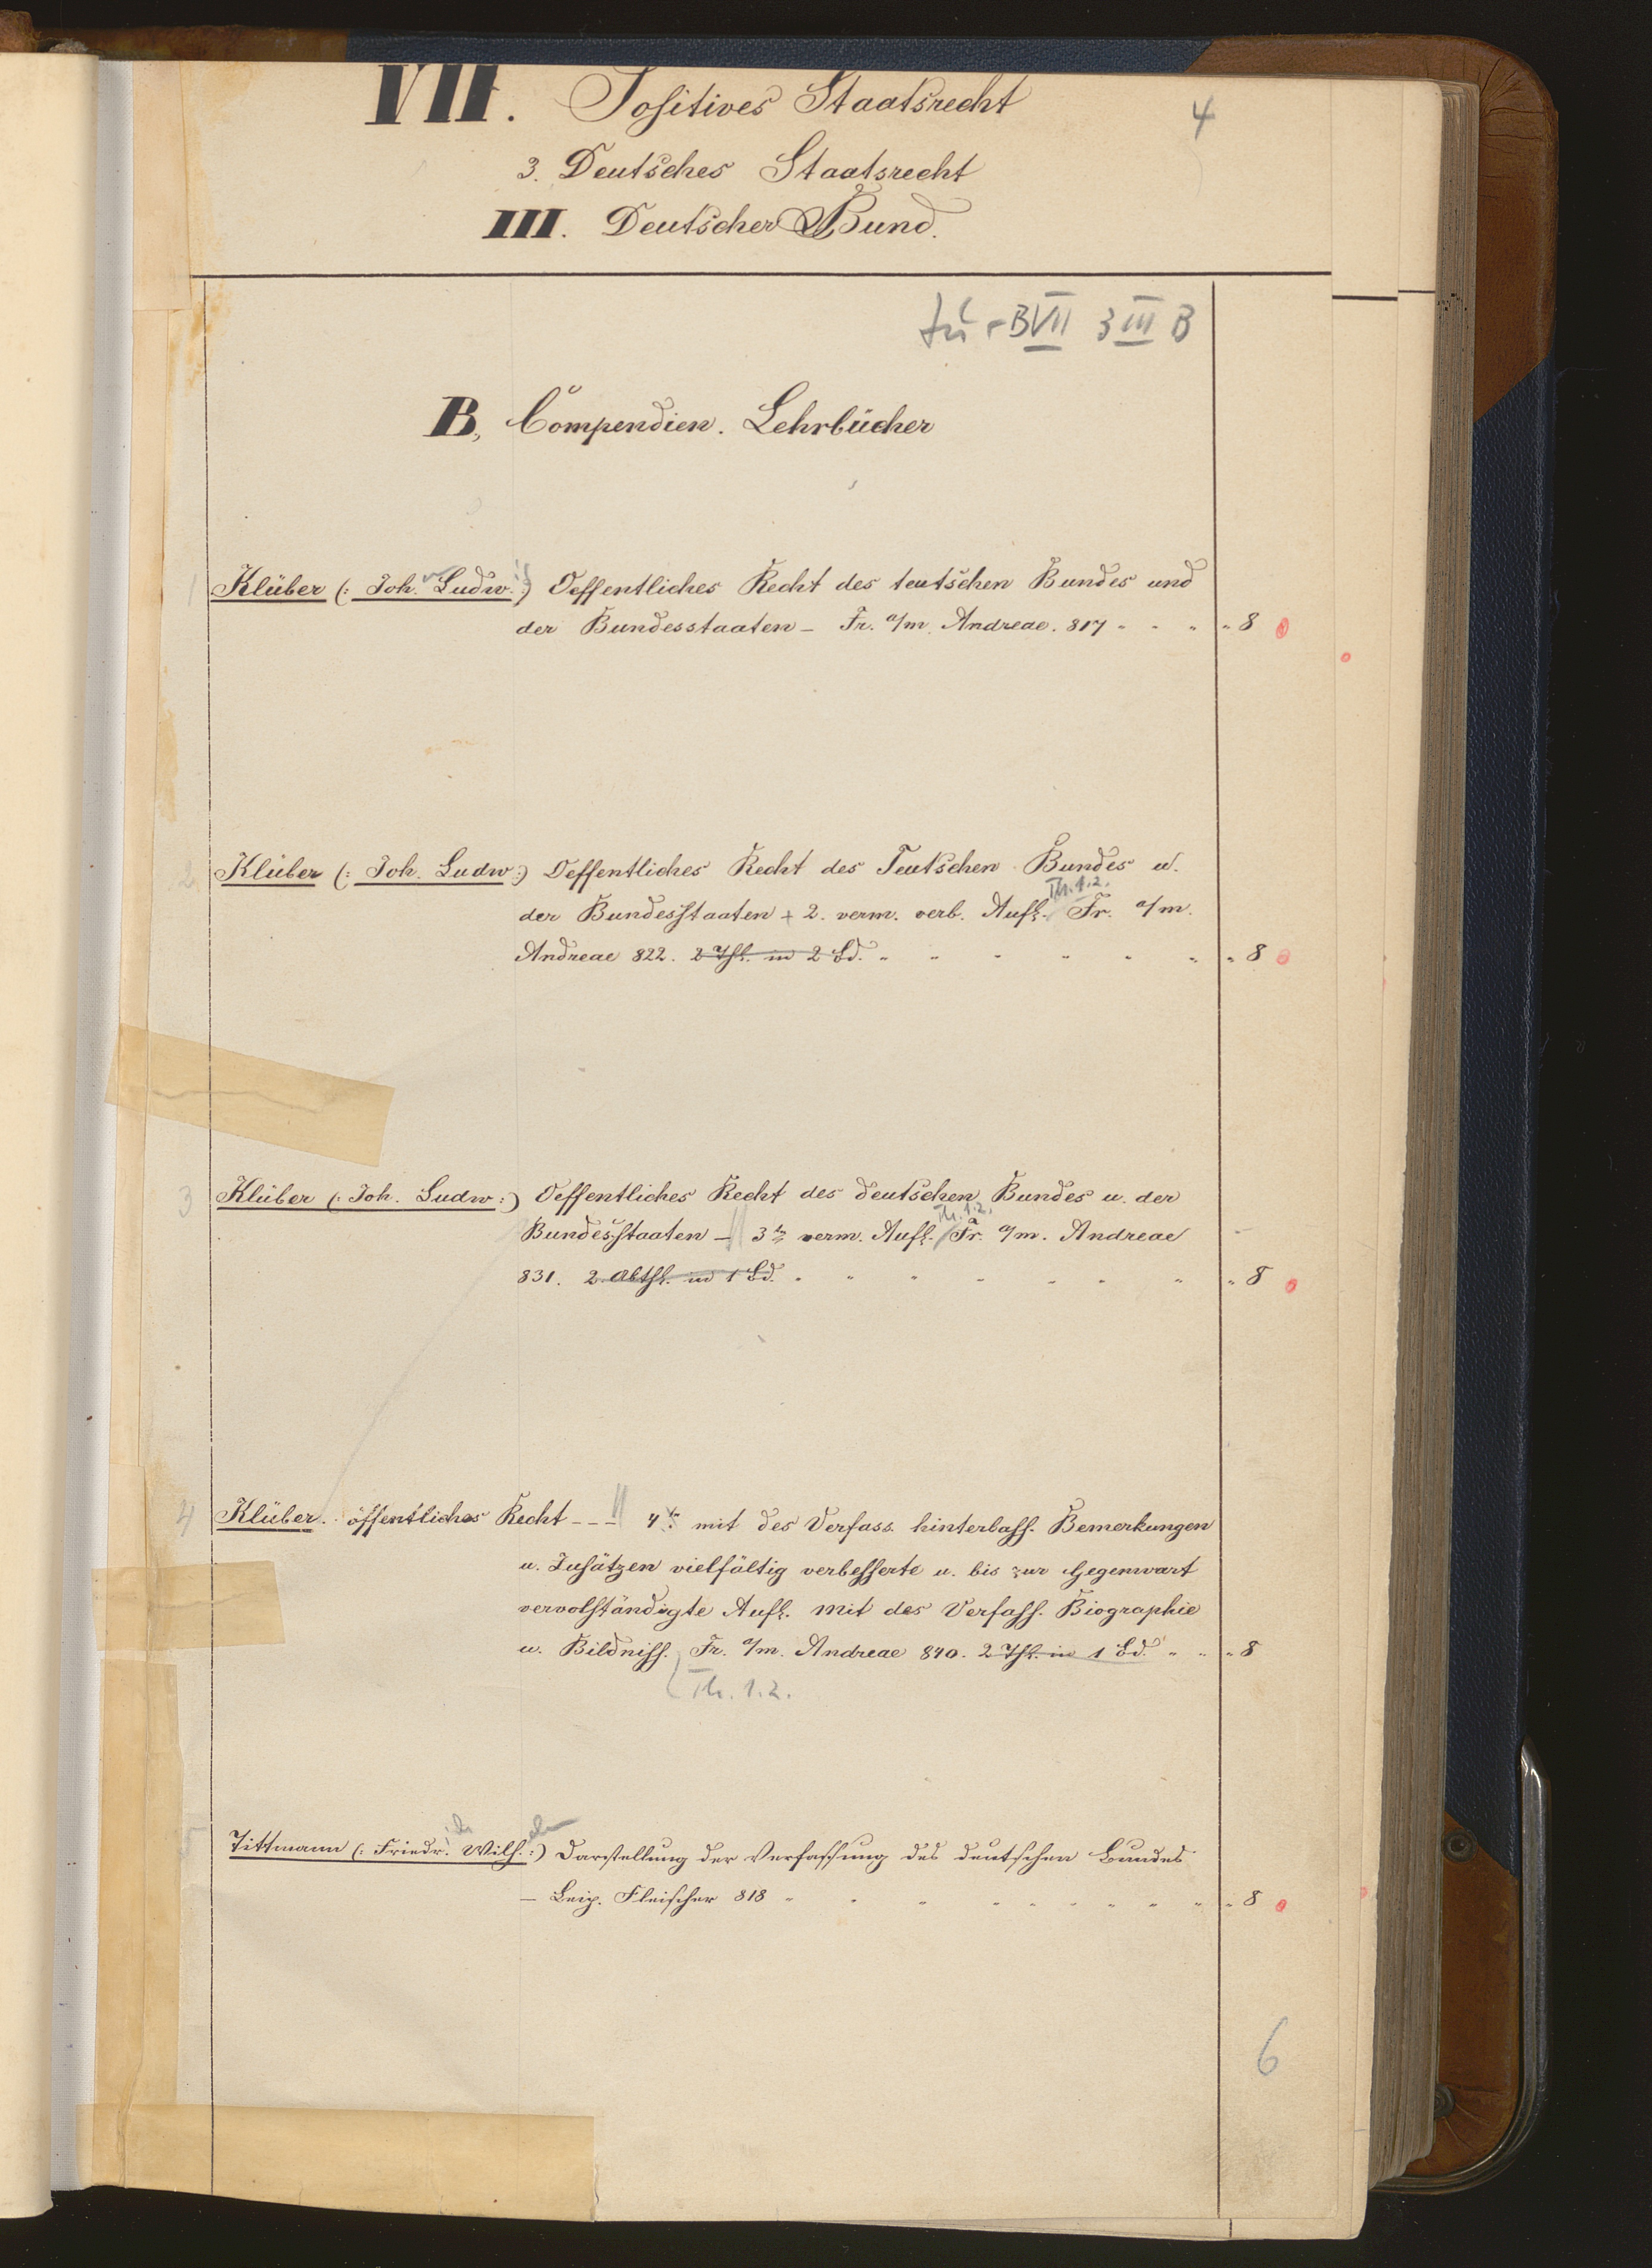 VII. Positives Staatsrecht
4
3. Deutsches Staatsrecht
III. Deutscher Bund.
BVII 3 III B
B, Compendien. Lehrbücher
1 Klüber (: Joh. Ludw. :) Oeffentliches Recht des teutschen Bundes und
der Bundesstaaten – Fr. a/m. Andreae. 817 " " " " 8
2 Klüber (: Joh. Ludw :) Oeffentliches Recht des Teutschen Bundes u.
Th. 1.2.
der Bundesstaaten + 2. verm. verb. Aufl. Fr. a/m.
Andreae 822. 2 Thl. in 2 Bd. " " " " " " " 8
3 Klüber (: Joh. Ludw :) Oeffentliches Recht des deutschen Bundes u. der
Th. 1.2.
Bundesstaaten – 3te verm. Aufl. Fr. a/m. Andreae
831. 2 Abthl. in 1 Bd. " " " " " " " " 8
4 Klüber. öffentliches Recht --- 4te mit des Verfass. hinterlass. Bemerkungen
u. Zusätzen vielfältig verbesserte u. bis zur Gegenwart
vervolständigte Aufl. mit des Verfass. Biographie
u. Bildniss. Fr. a/m. Andreae 840. 2 Thl. in 1 Bd. " " " 8
Th. 1.2.
5 Tittmann (: Friedr. Wilh. :) Darstellung der Verfassung des deutschen Bundes
– Leip. Fleischer 818 " " " " " " " " " " 8
6